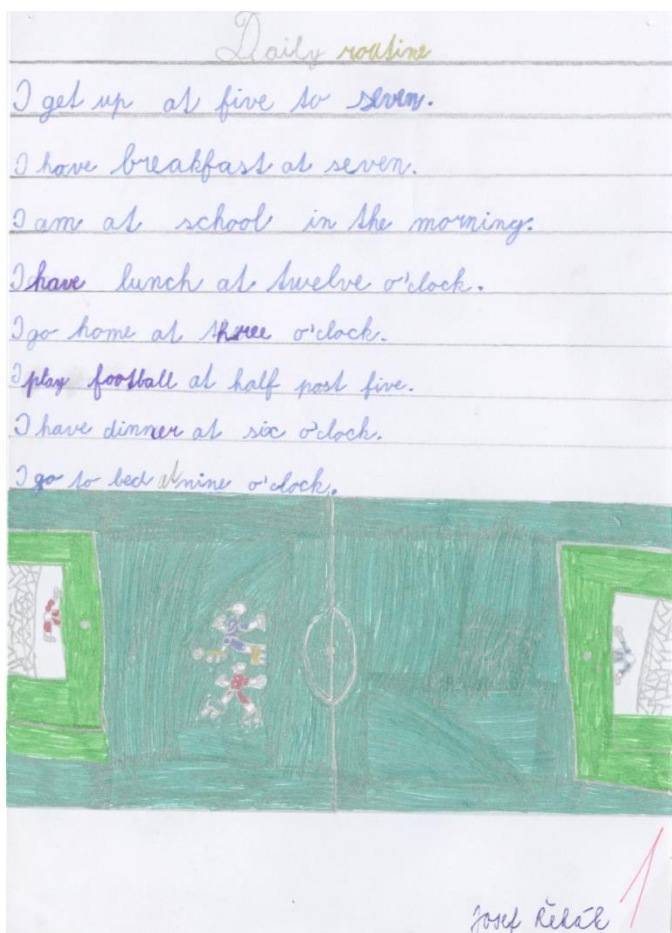 Daily routine
I get up at five to seven.
I have breakfast at seven.
I am at school in the morning.
I have lunch at twelve o'clock.
I go home at three o'clock.
I play football at half past five.
I have dinner at six o'clock.
I go to bed at nine o'clock.
Josef